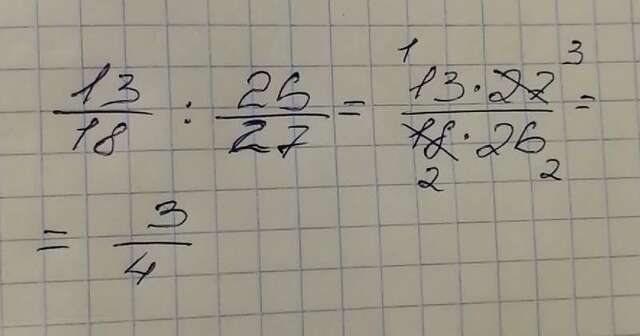 13/18 : 26/27 = 1 13·27 3 / 18·26 2 2 =
= 3/4